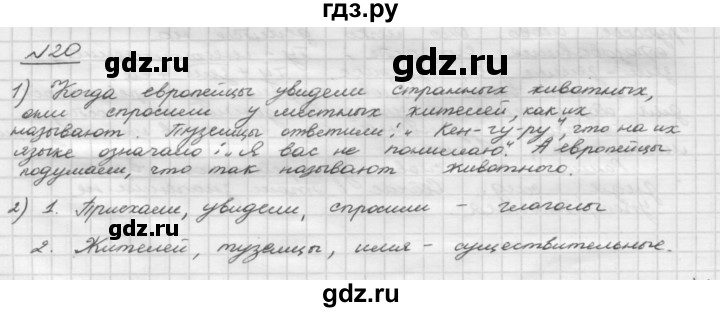 гдз.ру
№20
1) Когда европейцы увидели странных животных,
они спросили у местных жителей, как их
называют. Туземцы ответили: „Кен-гу-ру", что на их
языке означало: „Я вас не понимаю". А европейцы
подумали, что так называют животного.
2) 1. Приехали, увидели, спросили - глаголы
2. Жителей, туземцы, имя - существительные.
gdz.ru
gdz.ru
gdz.ru
gdz.ru
gdz.ru
gdz.ru
gdz.ru
gdz.ru